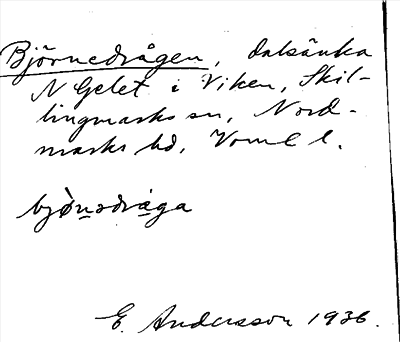 Björnedrågen, dalsänka
N Gelet i Viken, Skil-
lingmarks sn, Nord-
marks hd, Vrml l.
bjö̀ṇədråga
E. Andersson 1936.